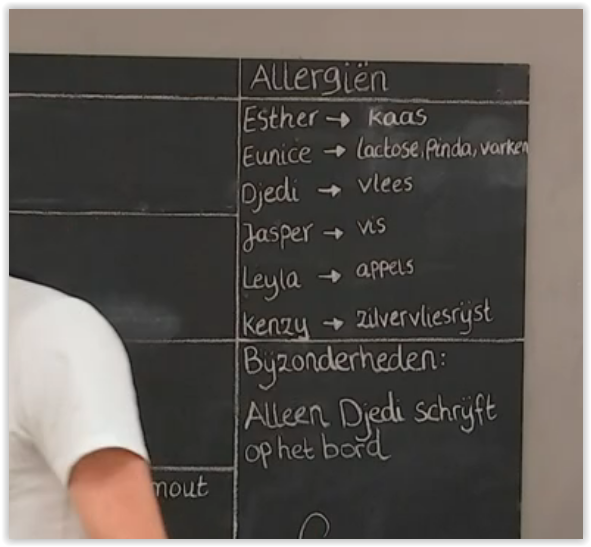 Allergiën
Esther → kaas
Eunice → lactose, Pinda, varken
Djedi → vlees
Jasper → vis
Leyla → appels
Kenzy → zilvervliesrijst
Bijzonderheden:
Alleen Djedi schrijft
op het bord